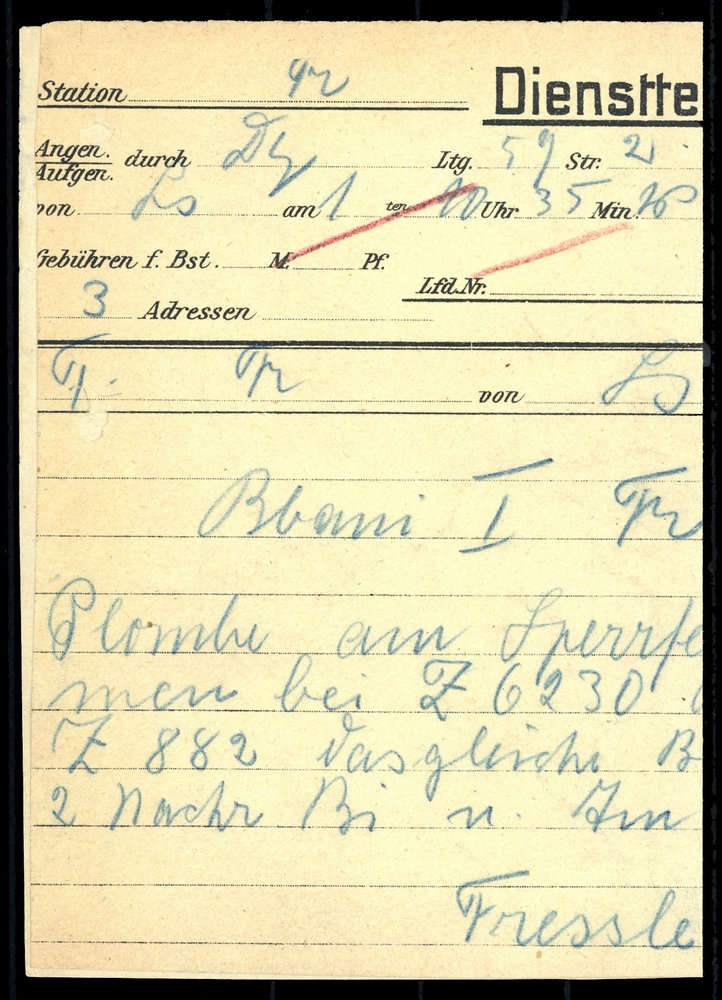 Station Tr Dienstte
Angen. Aufgen. durch Ltg. 59 Str. 2
von Ls am 1 ten 10 Uhr 35 Min
Gebühren f. Bst. M. Pf.
Lfd.Nr.
3 Adressen
Tr von Ls
Bbami I Tr
Plombe am Sperrfe
men bei Z 6230
Z 882 das gleiche B
2 Nachr Bi u.
Tressle